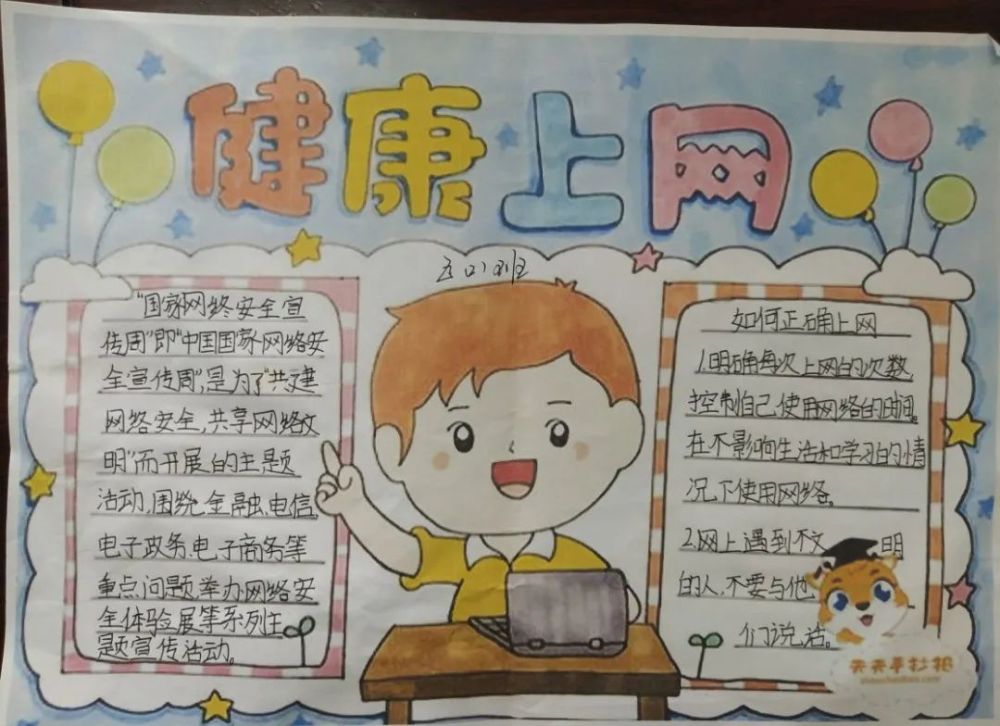 健康上网
五(1)班
"国家网络安全宣
传周"即"中国国家网络安
全宣传周",是为了"共建
网络安全,共享网络文
明"而开展的主题
活动,围绕金融、电信、
电子政务、电子商务等
重点问题举办网络安
全体验展等系列主
题宣传活动。
如何正确上网
1.明确每次上网的次数,
控制自己使用网络的时间。
在不影响生活和学习的情
况下使用网络。
2.网上遇到不文明
的人,不要与他
们说话。
天天手抄报